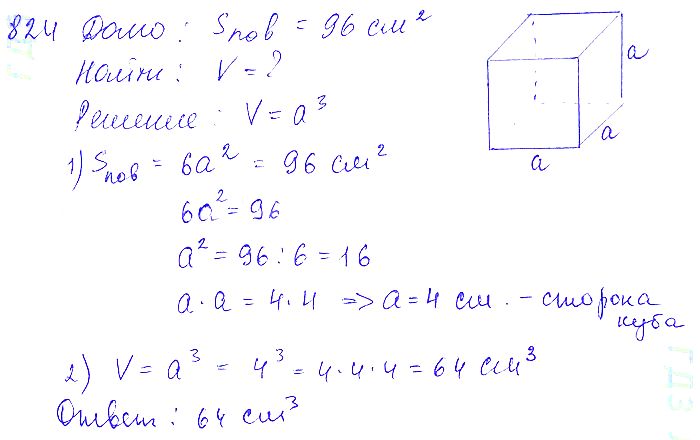 824 Дано: Sпов = 96 см²
Найти: V = ?
Решение: V = a³
1) Sпов = 6a² = 96 см²
6a² = 96
a² = 96 : 6 = 16
a · a = 4 · 4 => a = 4 см. – сторона куба
2) V = a³ = 4³ = 4 · 4 · 4 = 64 см³
Ответ: 64 см³
a
a
a